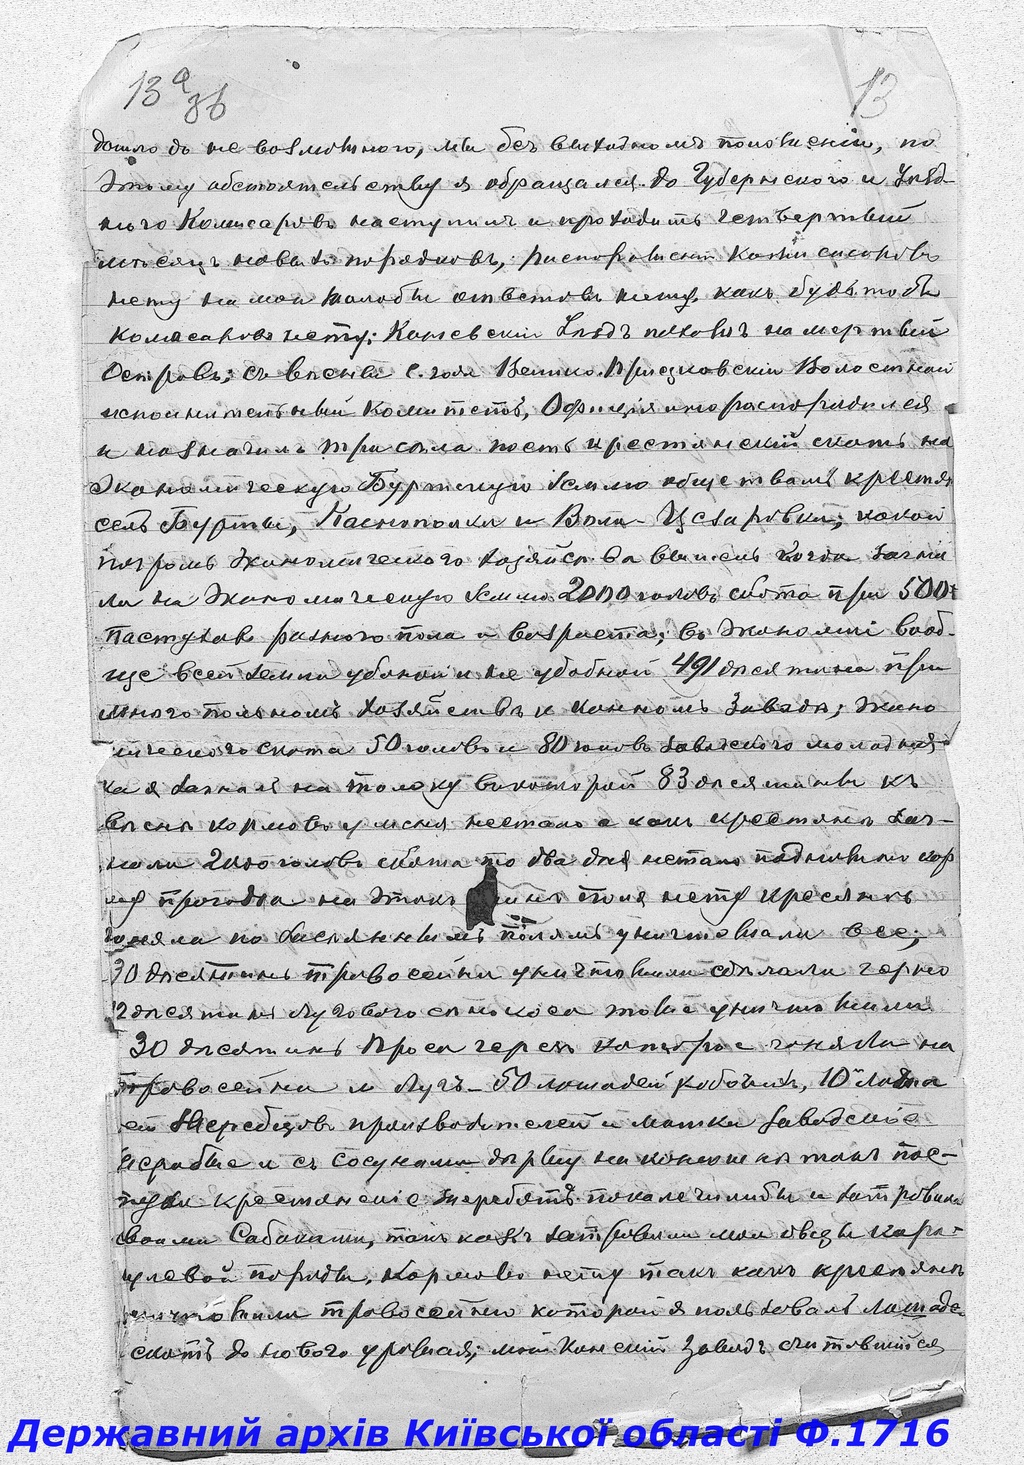 13 а
36
13
дошло до не возможного, мы без выходномъ положеніи, по
этому обстоятельству я обращался до Губернского и Уѣзд-
ного Комисаровъ наступилъ и проходитъ четвертый
мѣсяцъ новыхъ порядковъ, распоряженій Комисаровъ
нету на мои жалобы ответовъ нету, какъ будьтобы
Комисаровъ нету; Каневскій Уѣздъ похожъ на мертвый
Островъ; съ весны с. года Велико-Прицковскій Волостной
исполнительный Комитетъ, Офиціяльно распорядился
и назначилъ три села пасть крестянскій скотъ на
Экономическую Буртскую землю обществамъ крестя
селъ Бурты, Паснополки и Воли-Цезаровки; какой
погромъ Экономического хозяйства вышелъ когда загна
ли на Экономическую землю 2000 головъ скота при 500
пастуховъ разного пола и возраста; въ Экономіи вооб-
ще всей земли удобной и не удобной 491 десятина при
многопольномъ хозяйствѣ и конномъ Заводѣ; Эконо
мического скота 50 головъ и 80 головъ заводского молодня
ка я загналъ на толоку въ которой 83 десятины къ
веснѣ кормовъ у меня нестало а какъ крестяне заг-
нали 2000 головъ скота то два дня нестало подножного кор
му прогодка на этомъ поля нету кресяне
гоняли по засѣяннымъ полямъ уничтожали все;
30 десятинъ травосейки уничтожили сделали черно
12 десятинъ лугового сенокоса тоже уничтожили
30 десятинъ Проса через которое гоняли на
травосейки и лугъ - 50 лошадей рабочихъ, 10 лошад
ей Жеребцовъ производителей и матки заводскіе
жеребые и съ сосунами держу на конюшнѣ такъ пас-
тухи крестянскіе жеребятъ покалечилибы и затровили
своими Собаками, такъ какъ затровили мои овцы кара-
кулевой породы, Кормовъ нету такъ какъ крестяне
уничтожили травосейки которой я пользовалъ лошаде
скотъ до нового урожая; мой Конскій Заводъ считавшійся
Державний архів Київської області Ф.1716